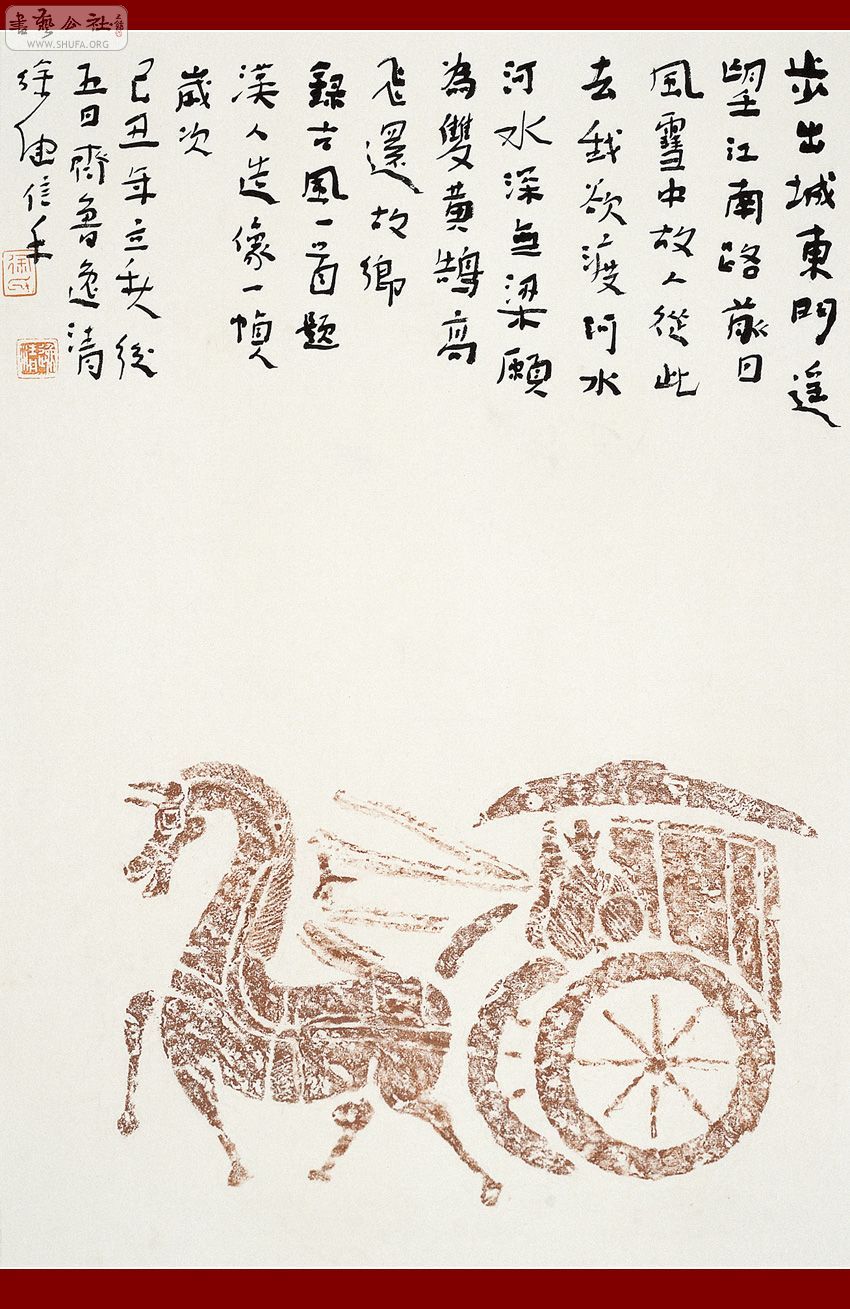 書藝公社
WWW.SHUFA.ORG
步出城東門遥
望江南路前日
風雪中故人從此
去我欲渡河水
河水深無梁願
為雙黄鵠高
飛還故鄉
錄古風一首題
漢人造像一幀
歲次
己丑年立秋後
五日齊魯逸清
徐信手